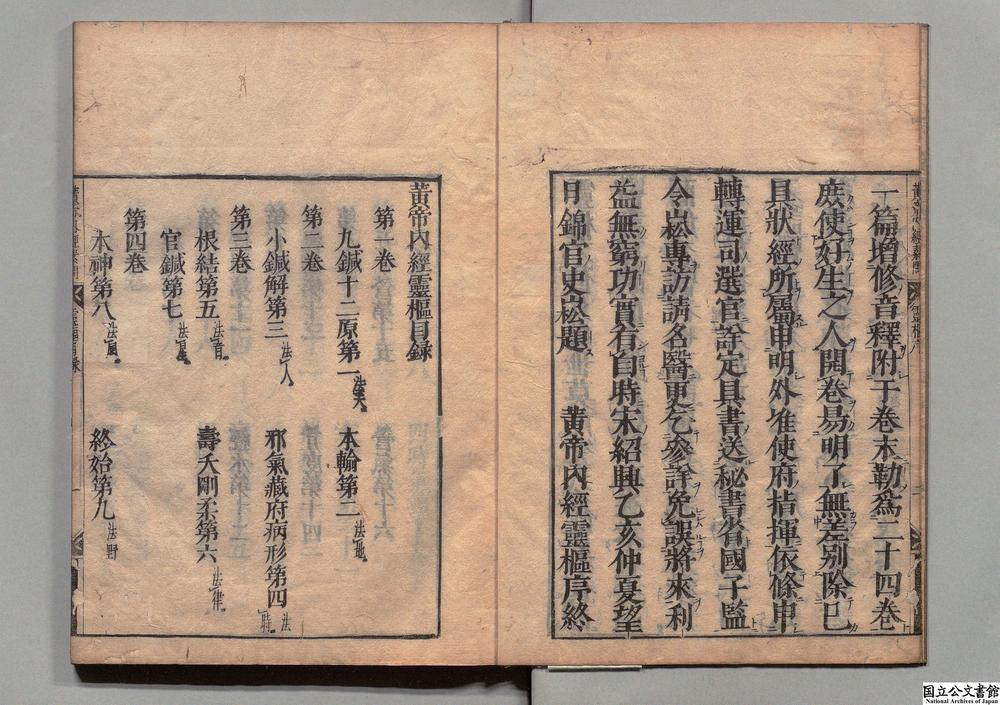 一篇增修音釋附于卷末勒為二十四卷
庻使好生之人開卷易明了無差別除已
具狀經所屬申明外准使府指揮依條申
轉運司選官詳定具書送秘書省國子監
令崧專訪請名醫更乞參詳免誤將來利
益無窮功實有自時宋紹興乙亥仲夏望
日錦官史崧題 黃帝內經靈樞序終
黃帝內經靈樞目錄
第一卷
九鍼十二原第一 法天 本輸第二 法地
第二卷
小鍼解第三 法人 邪氣藏府病形第四 法時
第三卷
根結第五 法音 壽夭剛柔第六 法律
官鍼第七 法星
第四卷
本神第八 法風 終始第九 法野
靈樞目錄
国立公文書館
National Archives of Japan